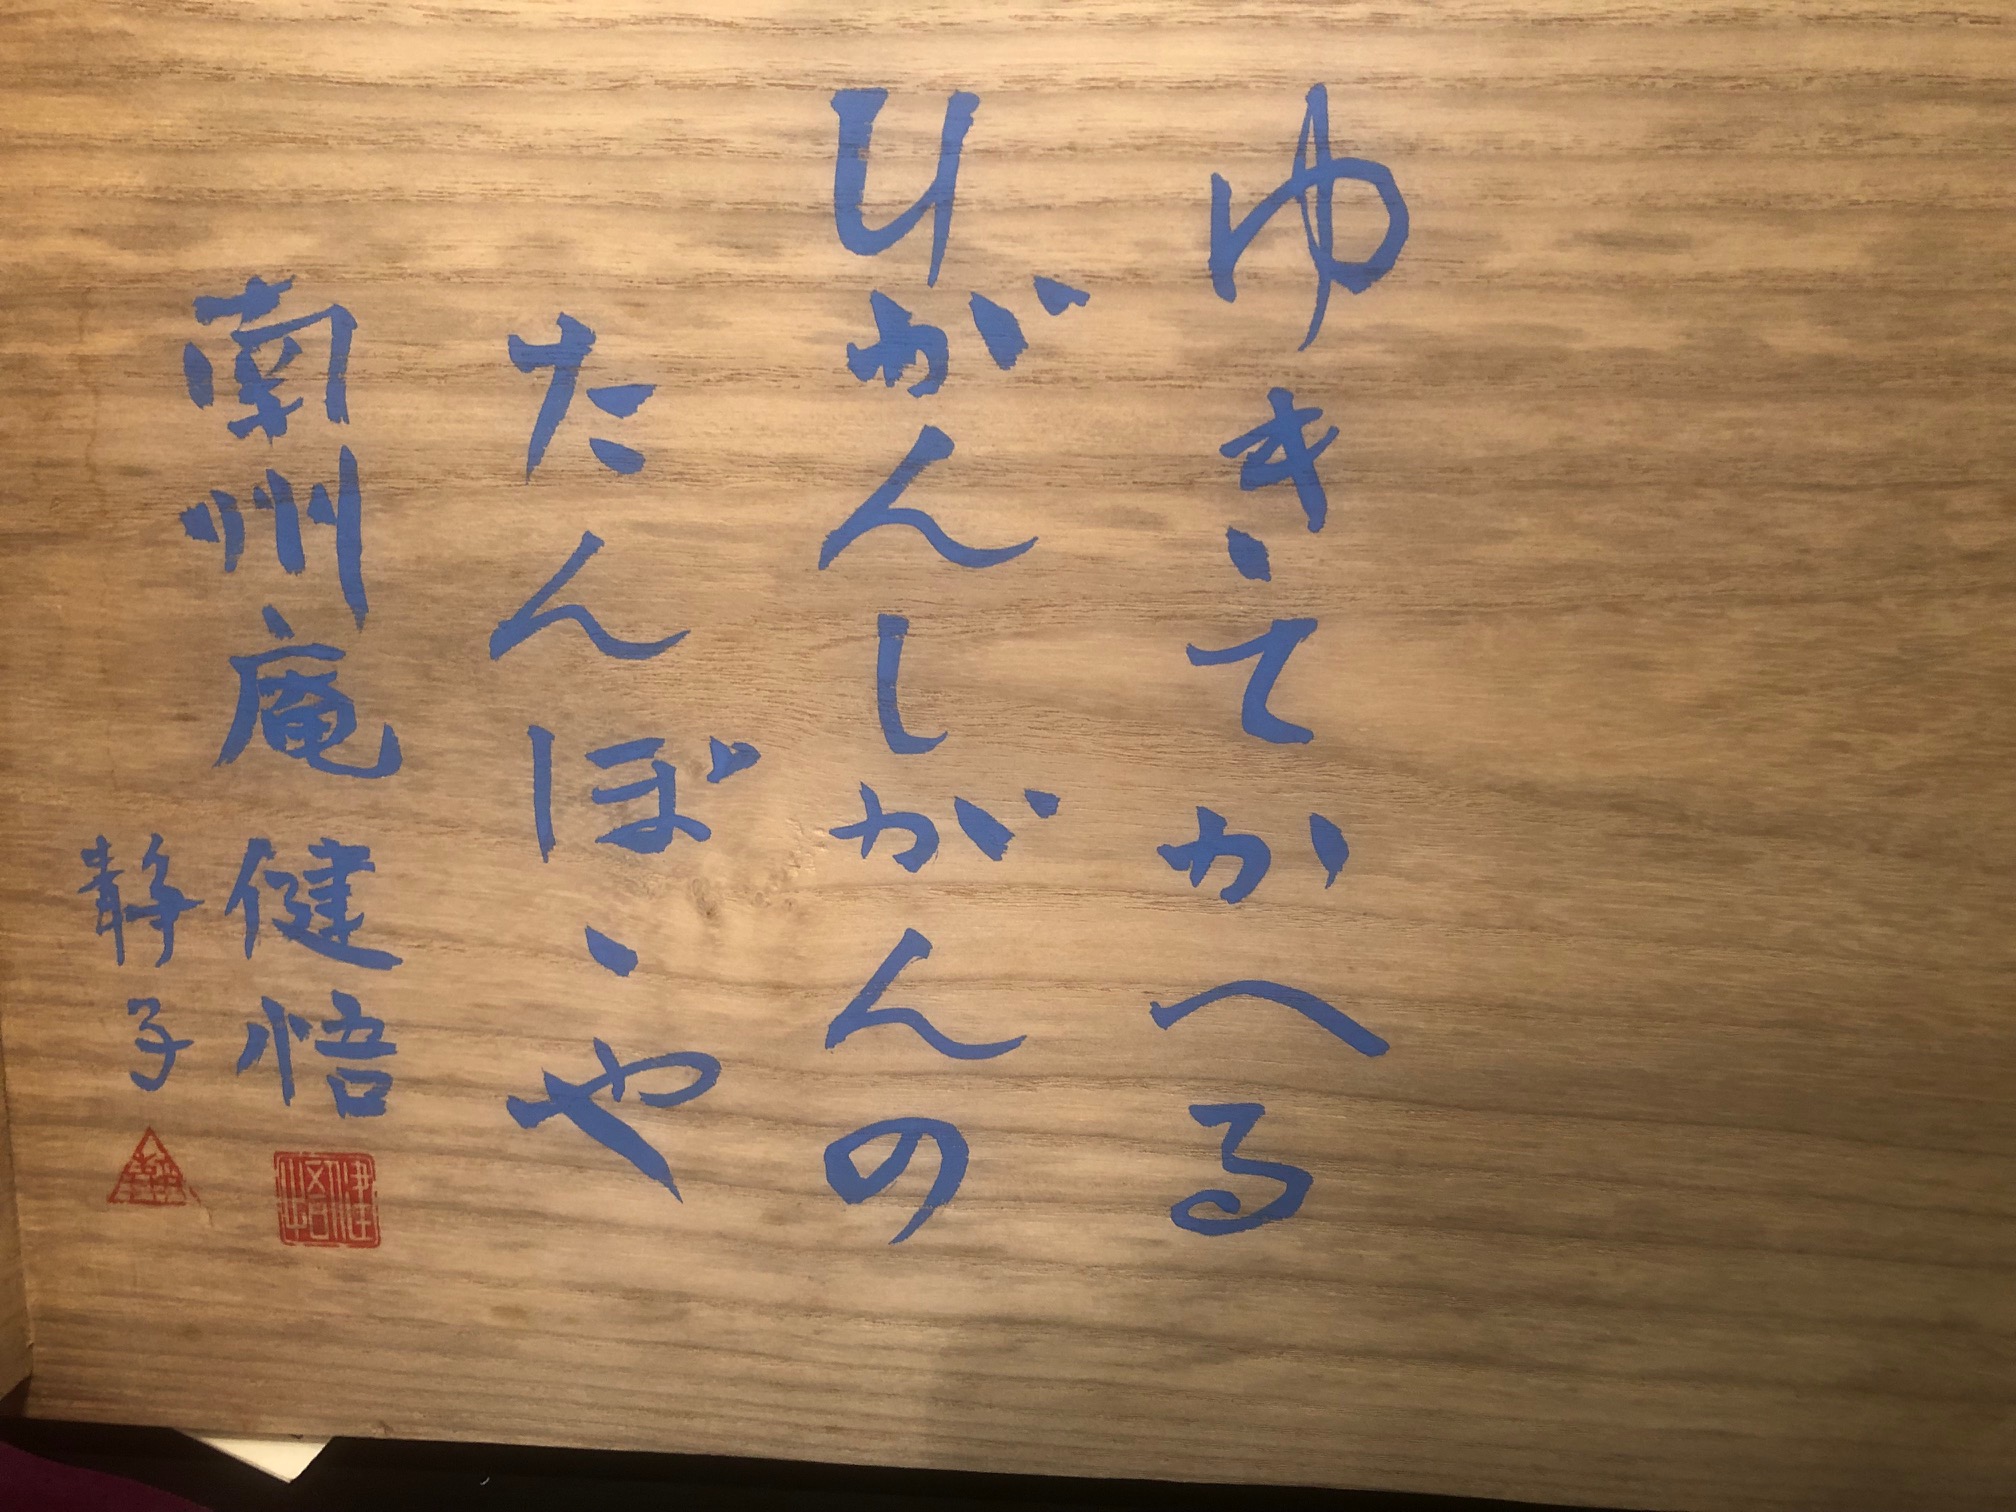 ゆきてかへる
ひがんしがんの
たんぼゝや
南州庵 健悟
静子